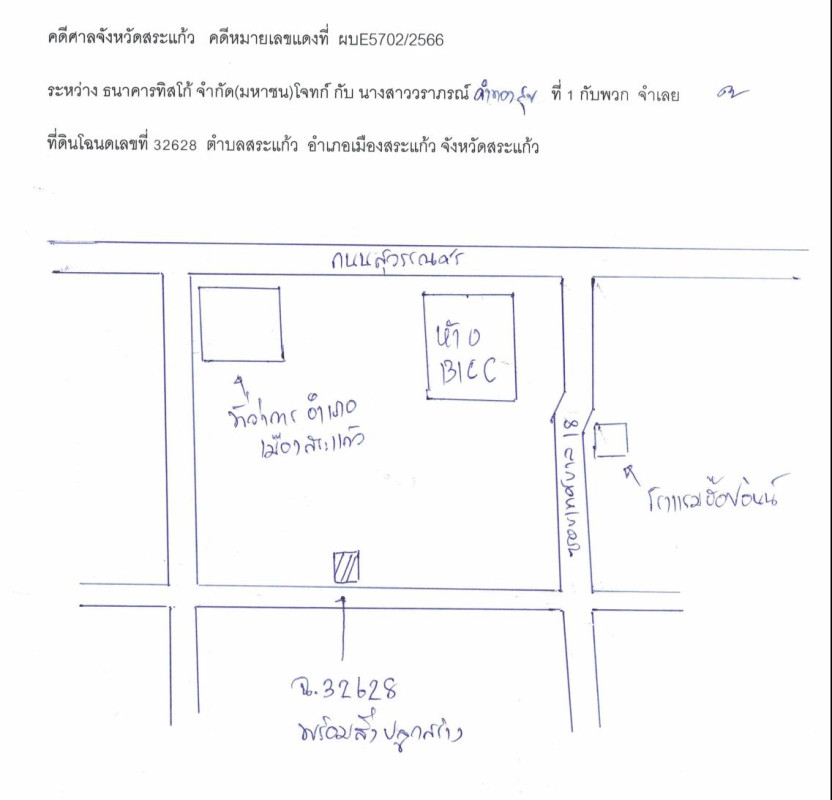 คดีศาลจังหวัดสระแก้ว คดีหมายเลขแดงที่ ผบE5702/2566
ระหว่าง ธนาคารทิสโก้ จำกัด(มหาชน)โจทก์ กับ นางสาววราภรณ์ ที่ 1 กับพวก จำเลย
ที่ดินโฉนดเลขที่ 32628 ตำบลสระแก้ว อำเภอเมืองสระแก้ว จังหวัดสระแก้ว
ถนนสุวรรณศร
ห้าง
BICC
ที่ว่าการ อำเภอ
เมืองสระแก้ว
18
โรงแรมฮ็อปอินน์
ฉ.32628
พร้อมสิ่งปลูกสร้าง